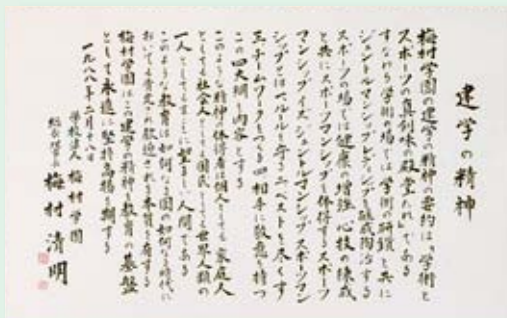 建学の精神
梅村学園の建学の精神の要約は、「学術と
スポーツの真剣味の殿堂たれ」である
すなわち学術の場では学術の研鑽と共に
ジェントルマンシップレディシップを醸成陶冶する
スポーツの場では健康の増強心技の錬成
と共にスポーツマンシップを体得するスポーツ
マンシップイズジェントルマンシップスポーツマン
シップとは一、ルールを守る二、ベストを尽くす
三、チームワークをつくる四、相手に敬意を持つ
この四大綱を内容とする
このような精神の体得者は個人としても家庭人
としても社会人としても国民としても世界人類の
一人としてもまことに望ましい人間である
このような教育は如何なる国の如何なる時代に
おいても青史の歓迎される本質を有する
梅村学園はこの建学の精神を教育の基盤
として永遠に堅持高揚を期する
一九八八年二月十八日
学校法人 梅村学園
総長・理事長 梅村清明